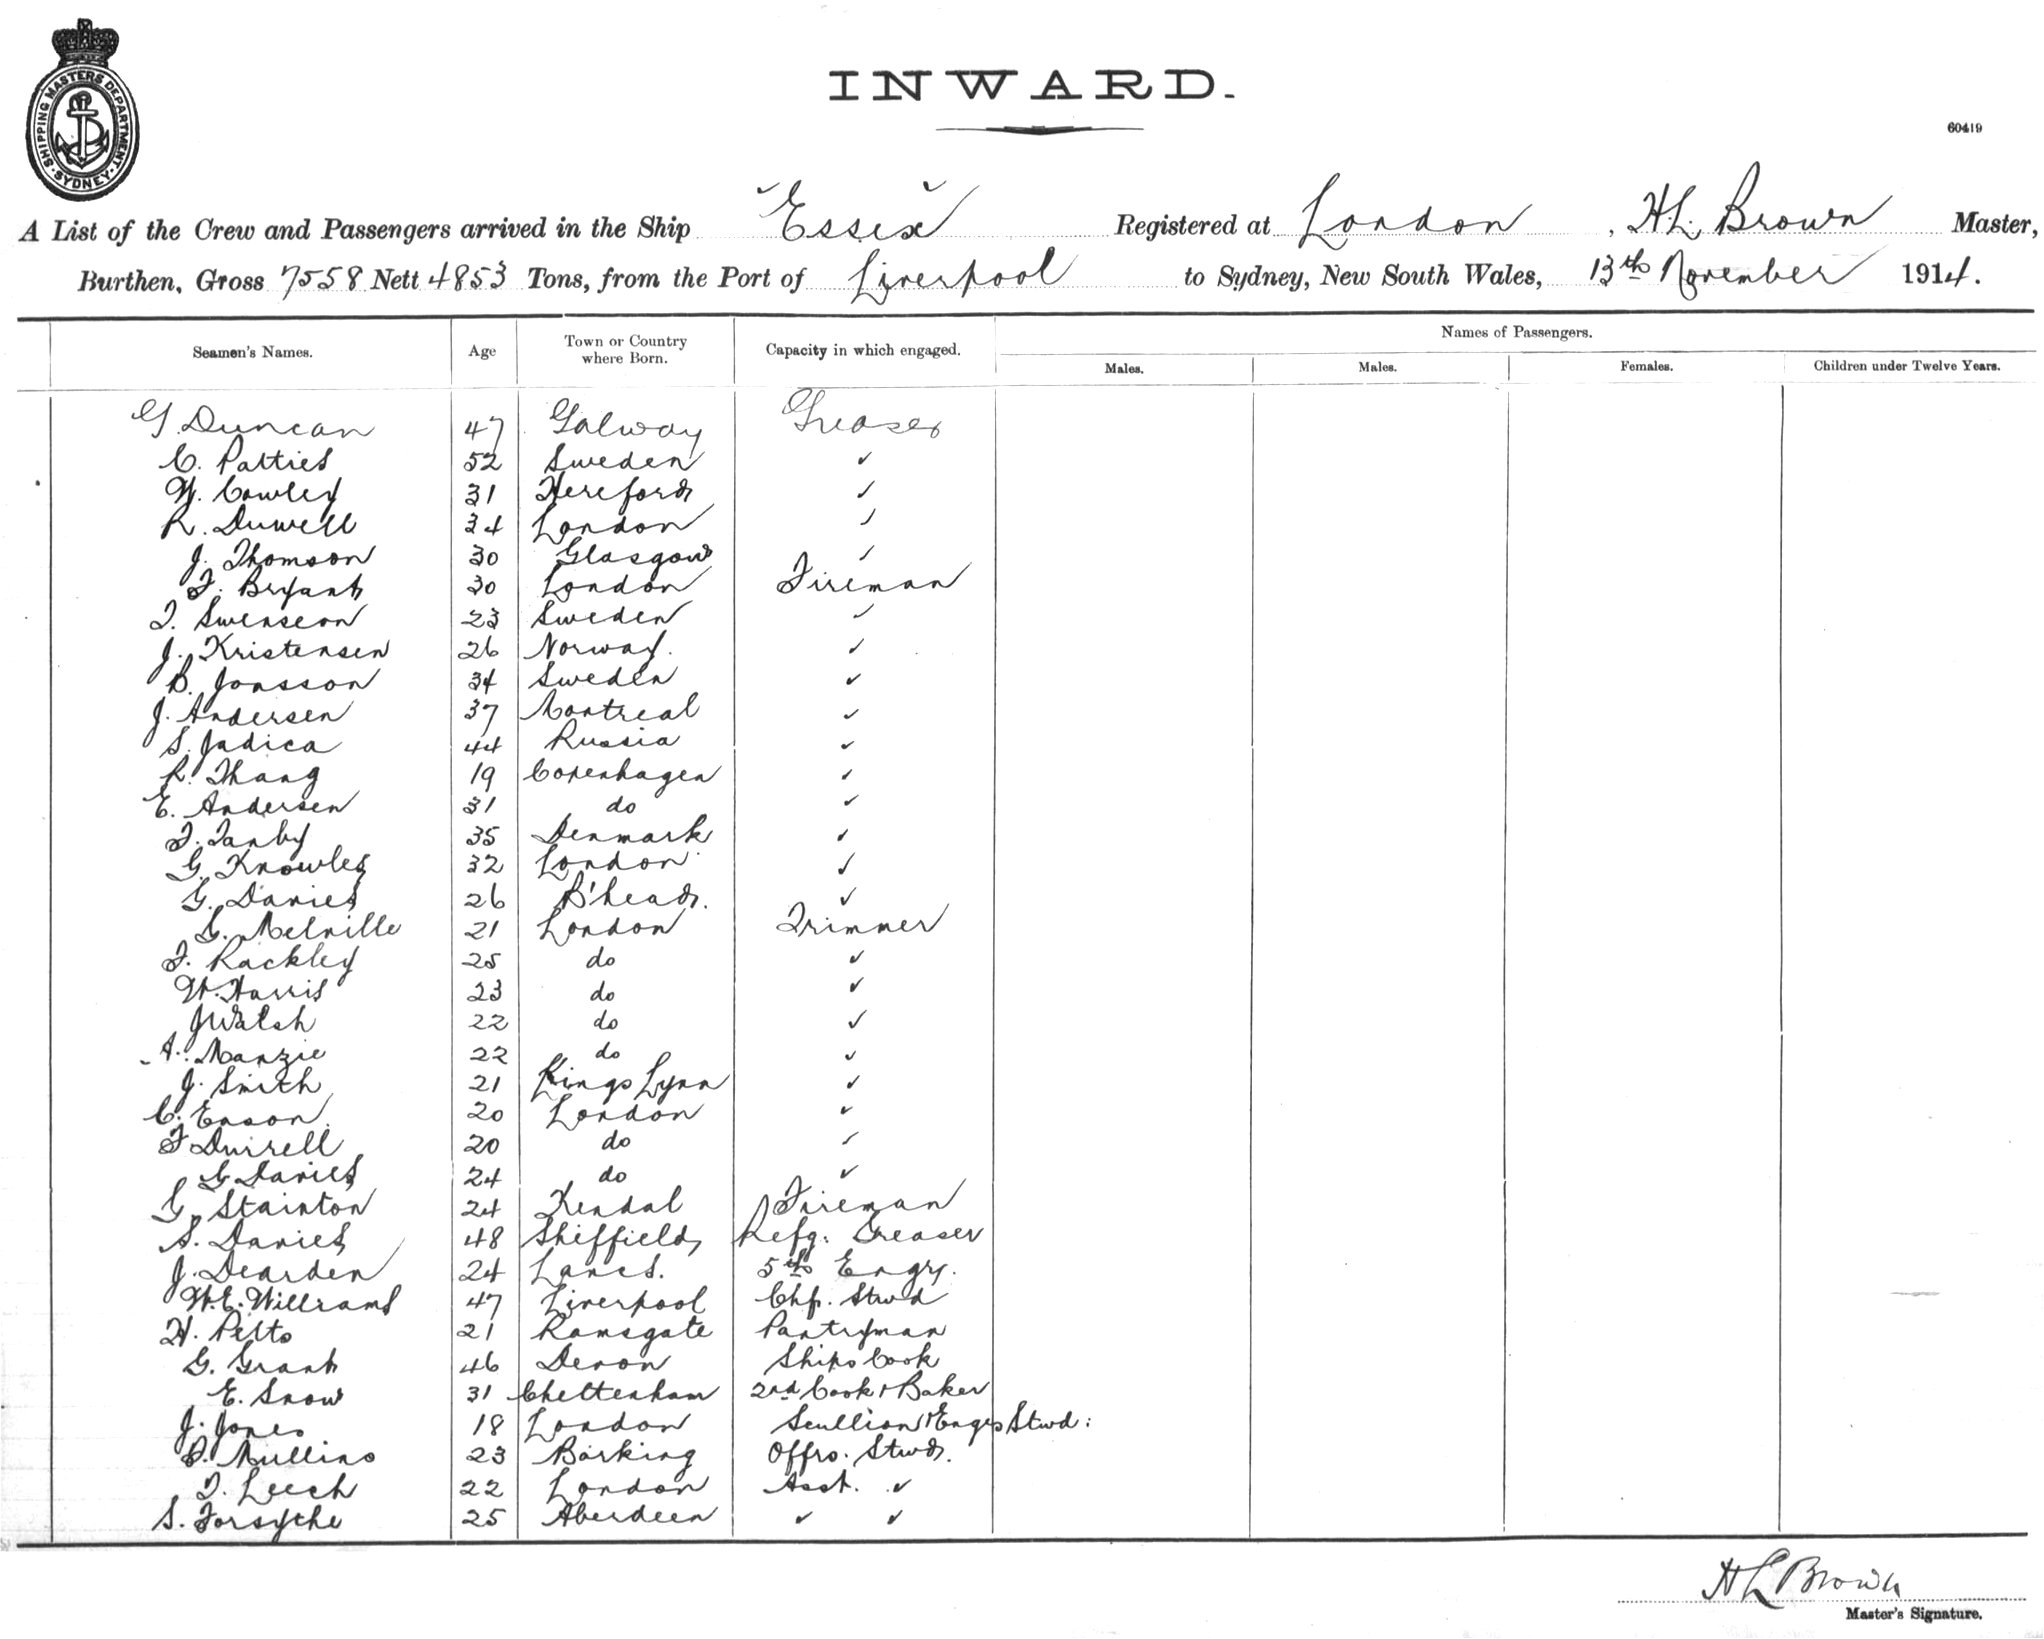 SHIPPING MASTERS DEPARTMENT · SYDNEY ·
INWARD.
60419
A List of the Crew and Passengers arrived in the Ship Essex Registered at London, H.L. Brown Master,
Burthen, Gross 7558 Nett 4853 Tons, from the Port of Liverpool to Sydney, New South Wales, 13th November 1914.
Names of Passengers.
Seamen's Names. Age Town or Country where Born. Capacity in which engaged. Males. Males. Females. Children under Twelve Years.
G Duncan 47 Galway Greaser
C. Patties 52 Sweden ✓
W. Cowley 31 Hereford ✓
R. Duwell 34 London ✓
J. Thomson 30 Glasgow ✓
F. Bryant 30 London Fireman
T. Swenseon 23 Sweden ✓
J. Kristensen 26 Norway. ✓
B. Jonsson 34 Sweden ✓
J. Andersen 37 Montreal ✓
S. Jadica 44 Russia ✓
R. Thang 19 Copenhagen ✓
E. Andersen 31 do ✓
35 Denmark ✓
G. Knowles 32 London ✓
G. Davies 26 B'head. ✓
G. Melville 21 London Trimmer
F. Rackley 25 do ✓
W. Harris 23 do ✓
J Walsh 22 do ✓
A. Manzie 22 do ✓
J. Smith 21 Kings Lynn ✓
C. Enson. 20 London ✓
F Durrell 20 do ✓
G Davies 24 do ✓
G. Stainton 24 Kendal Fireman
S. Davies 48 Sheffield Refg. Greaser
J. Dearden 24 Lancs. 5th Engr.
W.E. Williams 47 Liverpool Chf. Stwd
H. Pelts 21 Ramsgate Pantryman
G. Grant 46 Devon Ships Cook
E. Snow 31 Cheltenham 2nd Cook & Baker
J. Jones 18 London Scullion & Engrs Stwd:
D. Mullins 23 Barking Offrs. Stwd.
T. Leech 22 London Asst. ✓
S. Forsythe 25 Aberdeen ✓ ✓
H L Brown
Master's Signature.